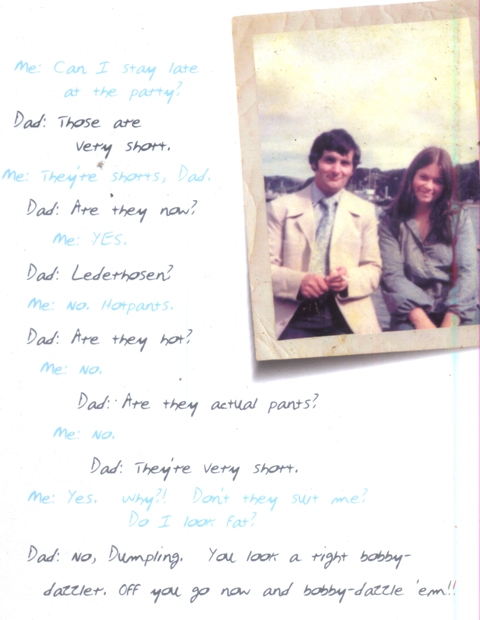 Me: Can I stay late
at the party?
Dad: Those are
very short.
Me: They're shorts, Dad.
Dad: Are they now?
Me: YES.
Dad: Lederhosen?
Me: No. Hotpants.
Dad: Are they hot?
Me: No.
Dad: Are they actual pants?
Me: No.
Dad: They're very short.
Me: Yes. Why?! Don't they suit me?
Do I look fat?
Dad: No, Dumpling. You look a right bobby-
dazzler. Off you go now and bobby-dazzle 'em!!